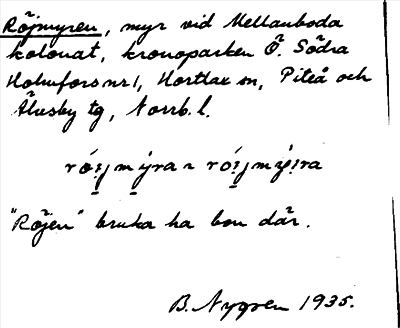 Röjmyren, myr vid Mellanboda
kolonat, kronoparken Ö. Södra
Holmfors nr 1, Hortlax sn, Piteå och
Älvsby tg, Norrb. l.
"Röjen" bruka ha bon där.
B. Nygren 1935.